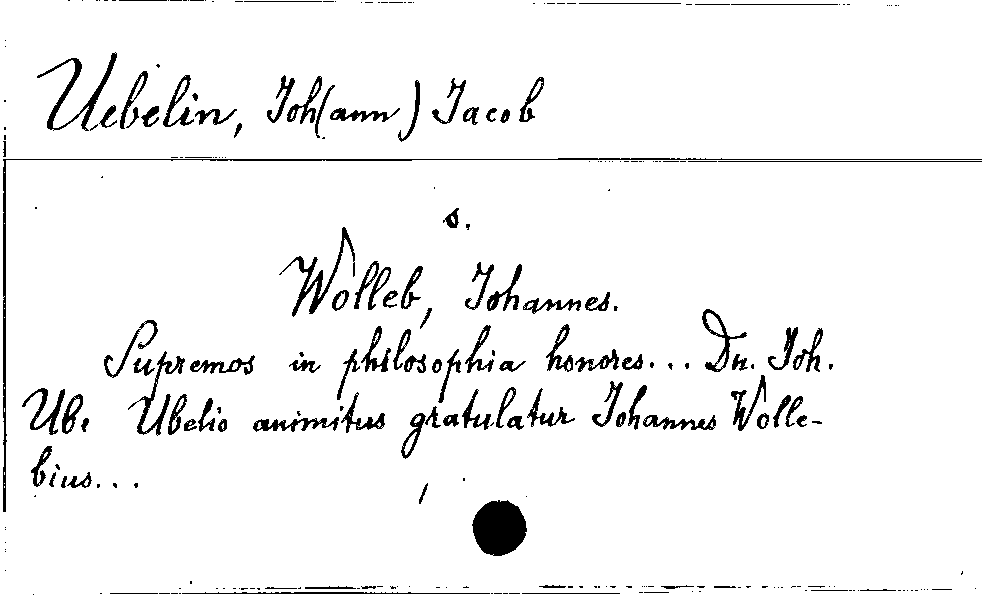 Uebelin, Joh(ann) Jacob
s.
Wolleb, Johannes.
Supremos in philosophia honores... Dn. Joh.
Ub. Ubelio animitus gratulatur Johannes Wolle-
bius...